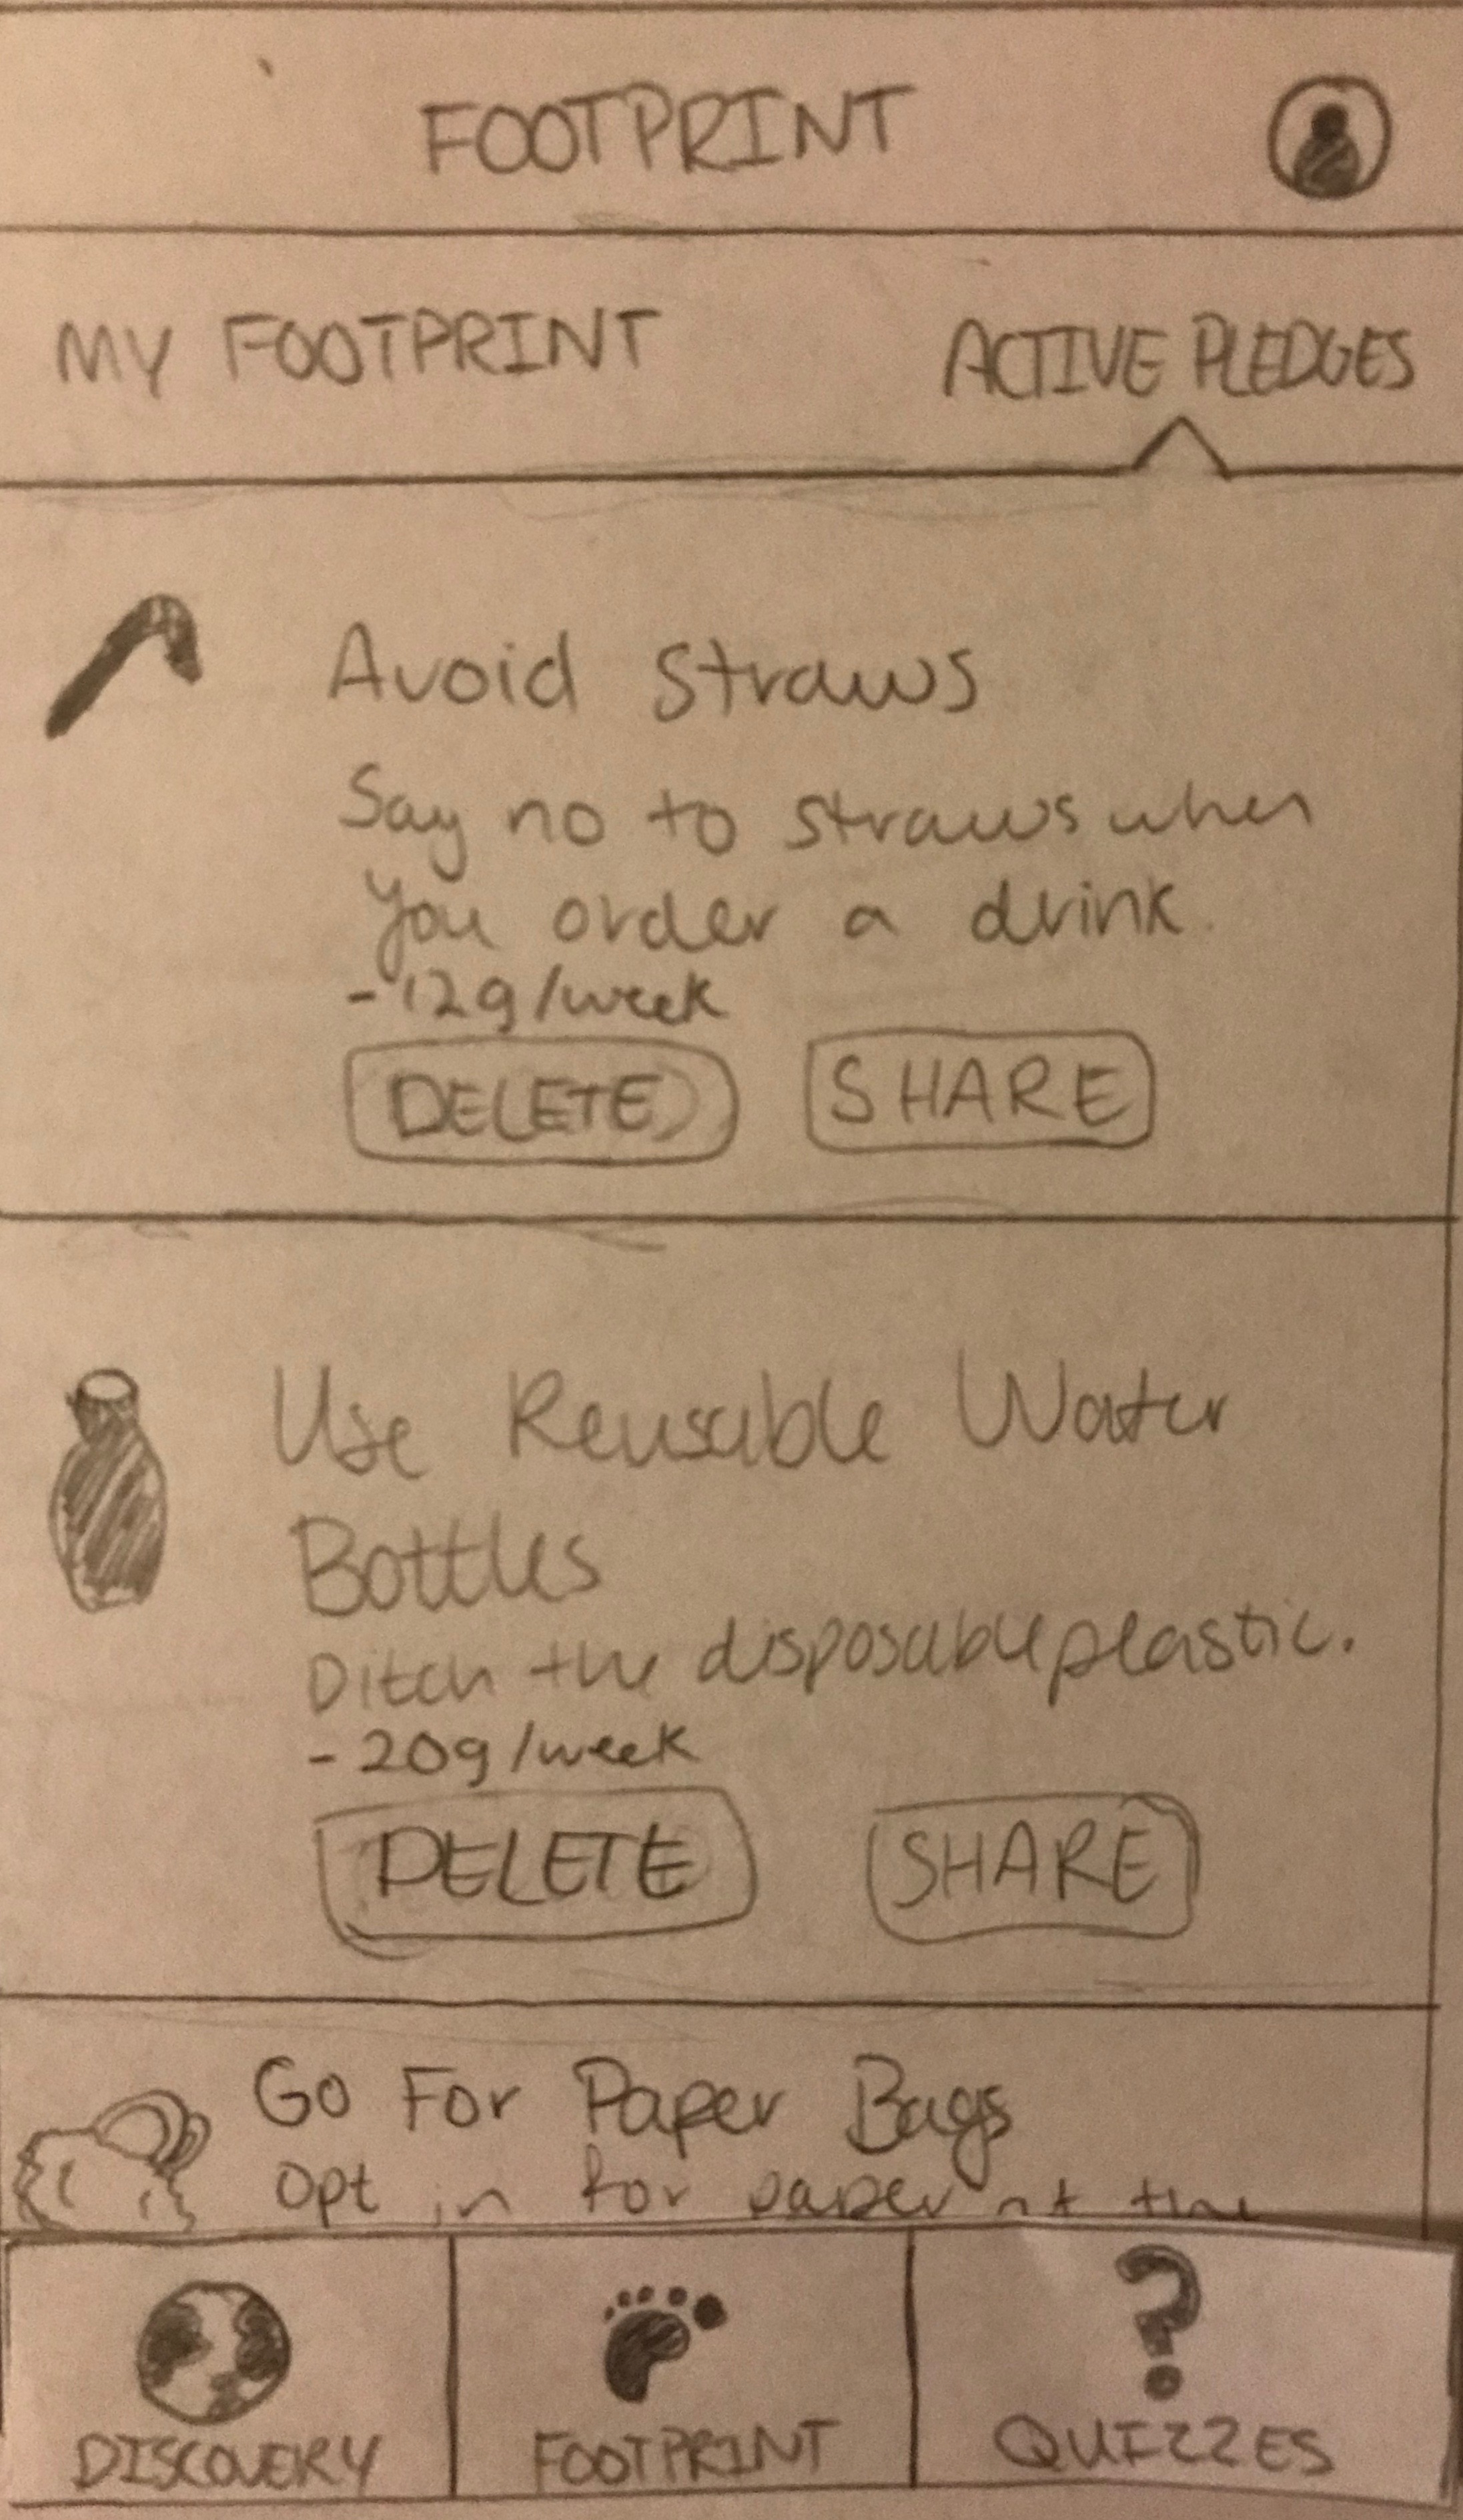 FOOTPRINT
MY FOOTPRINT
ACTIVE PLEDGES
Avoid Straws
Say no to straws when
you order a drink.
- 12g/week
DELETE
SHARE
Use Reusable Water
Bottles
Ditch the disposable plastic.
- 20g/week
DELETE
SHARE
Go For Paper Bags
Opt in for paper at the
DISCOVERY
FOOTPRINT
QUIZZES